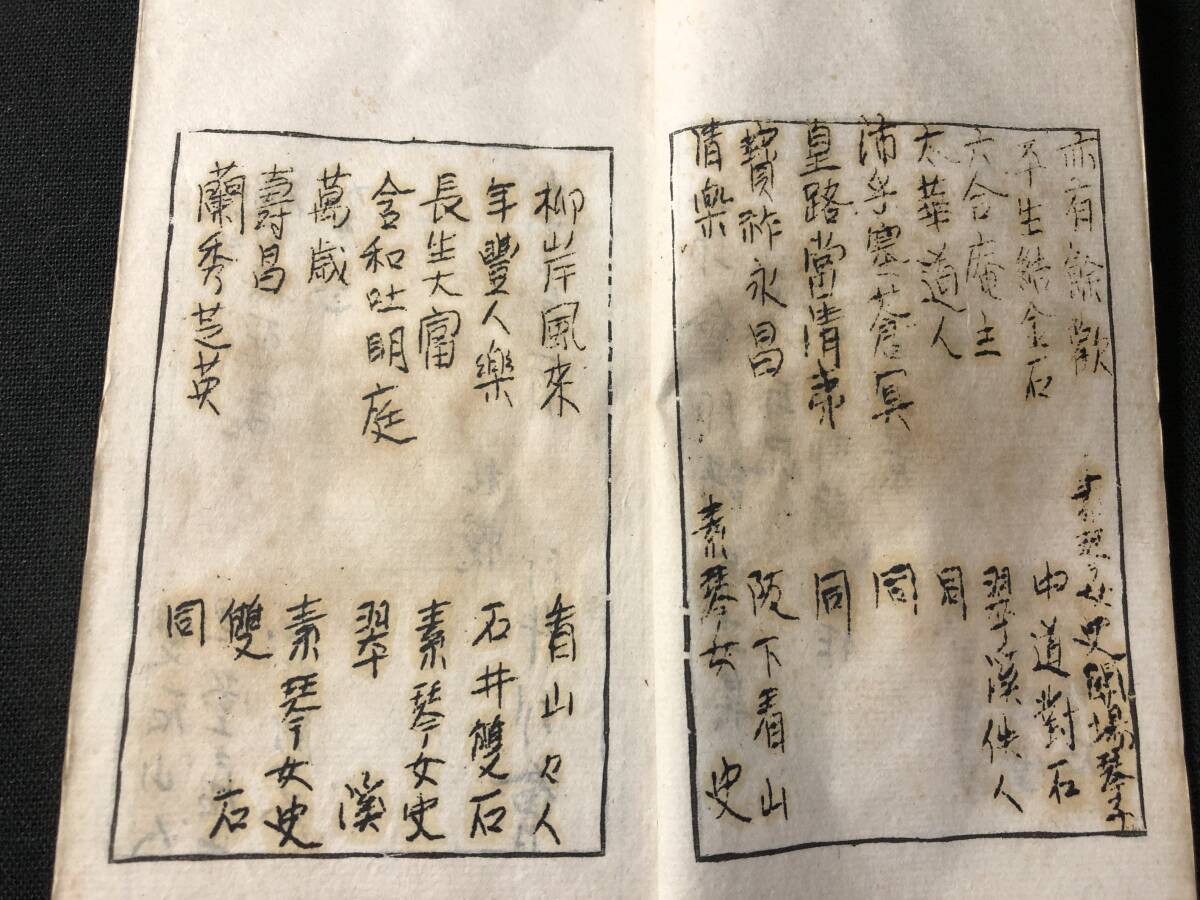 亦有餘歡 素琴女史關場琴子
平生結金石 中道對石
六合庵主 翠溪佚人
太華道人 同
沛乎塞蒼冥 同
皇路當清夷 同
寶祚永昌 阪下看山
清樂 素琴女史
柳岸風來 看山々人
年豐人樂 石井雙石
長生大富 素琴女史
含和吐明庭 翠溪
萬歳 素琴女史
壽昌 雙石
蘭秀芝英 同